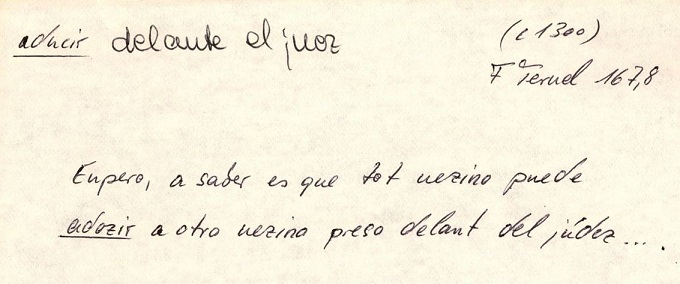 aducir delante el juez
(c 1300)
Fº Teruel 167,8
Enpero, a saber es que tot uezino puede
adozir a otro uezino preso delant del júdez....